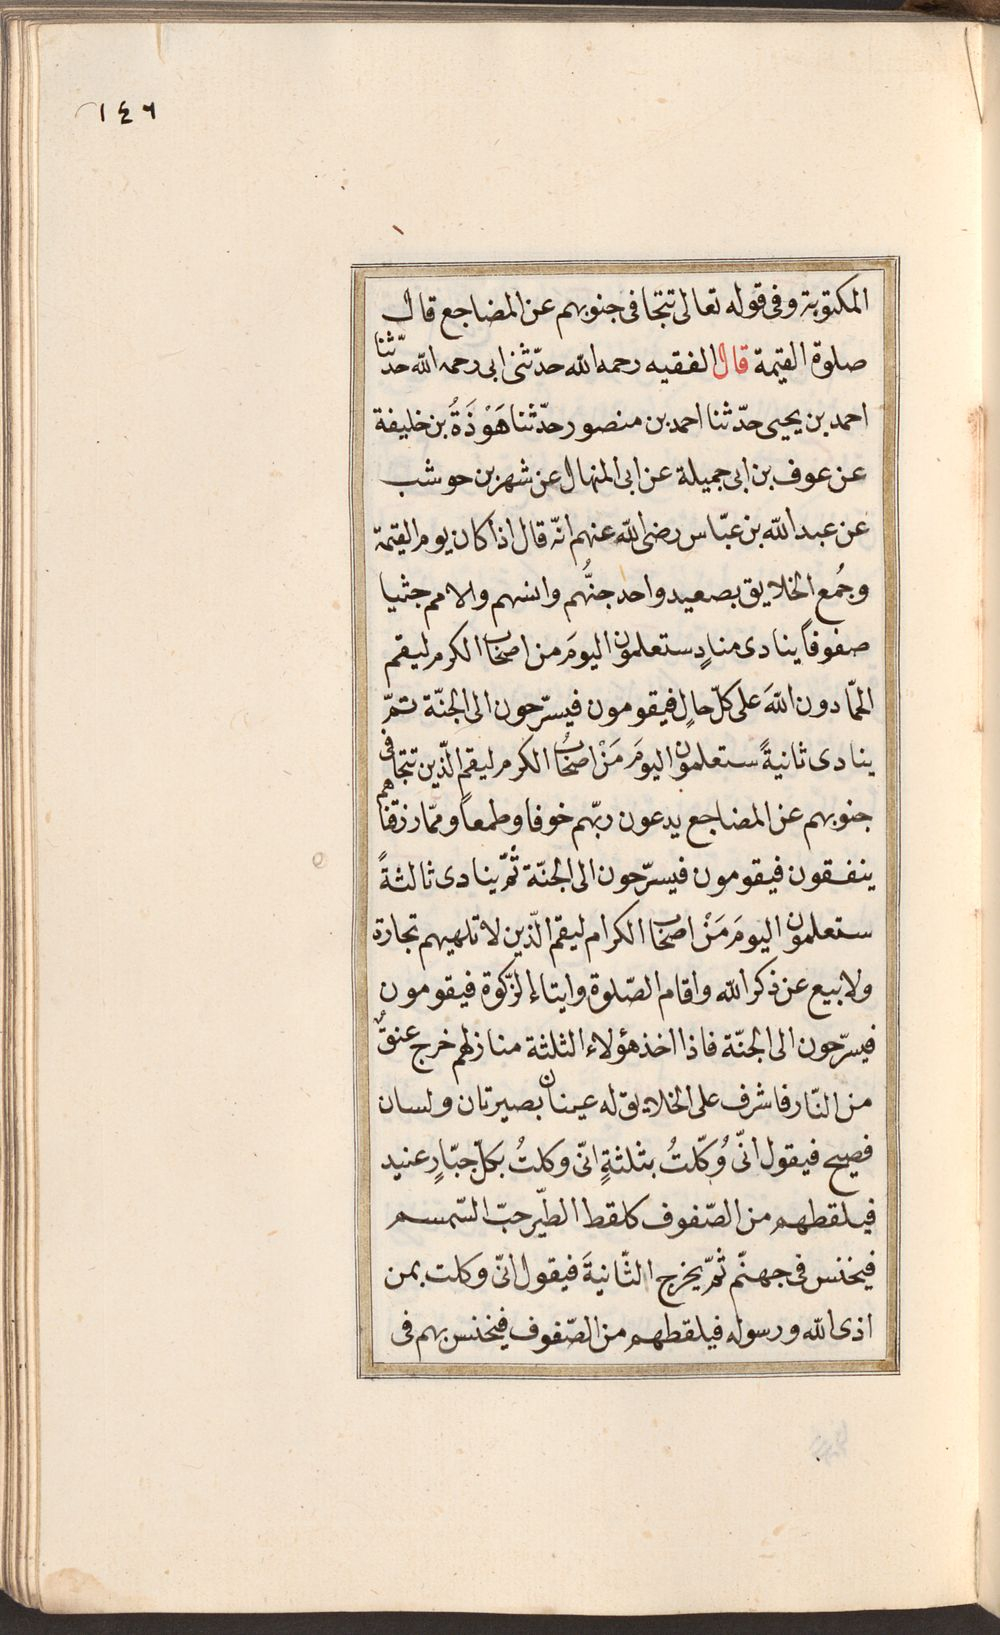 ١٤٦
المكتوبة وفى قوله تعالى تتجافى جنوبهم عن المضاجع قال
صلوة القيمة قال الفقيه رحمه الله حدّثنى ابى رحمه الله حدّثنا
احمد بن يحيى حدّثنا احمد بن منصور حدّثنا هَوْذَةُ بن خليفة
عن عوف بن ابى جميلة عن ابى المنهال عن شهر بن حوشب
عن عبد الله بن عبّاس رضى الله عنهم انّه قال اذا كان يوم القيمة
وجُمع الخلايق بصعيد واحد جنُّهم وانسهم والامم جثيا
صفوفاً ينادى منادٍ ستعلمون اليومَ من اصحاب الكرم ليقم
الحمّادون اللهَ على كلّ حالٍ فيقومون فيسرّحون الى الجنّة ثمّ
ينادى ثانيةً ستعلمون اليومَ مَنْ اصحابُ الكرم ليقم الّذين تتجافى
جنوبهم عن المضاجع يدعون ربّهم خوفا وطمعاً وممّا رزقناهم
ينفقون فيقومون فيسرّحون الى الجنّة ثُمّ ينادى ثالثةً
ستعلمون اليومَ مَنْ اصحاب الكرام ليقم الّذين لا تلهيهم تجارة
ولا بيع عن ذكر الله واقام الصّلوة وايتاء الزّكوة فيقومون
فيسرّحون الى الجنّة فاذا اخذ هؤلاء الثلثة منازلهم خرج عنقٌ
من النّار فاشرف على الخلايق له عينان بصيرتان ولسان
فصيح فيقول انّى وُكّلتُ بثلثةٍ انّى وكلتُ بكلّ جبّارٍ عنيد
فيلقطهم من الصّفوف كلقط الطّير حبّ السّمسم
فيخنس فى جهنّم ثُمّ يخرج الثّانيةَ فيقول انّى وكلت بمن
اذى الله ورسوله فيلقطهم من الصّفوف فيخنس بهم فى